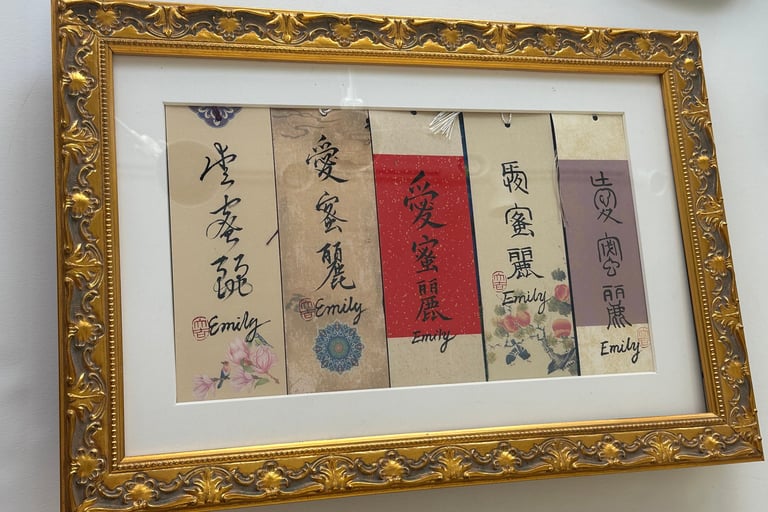 愛蜜麗
Emily
愛蜜麗
Emily
愛蜜麗
Emily
愛蜜麗
Emily
愛蜜麗
Emily